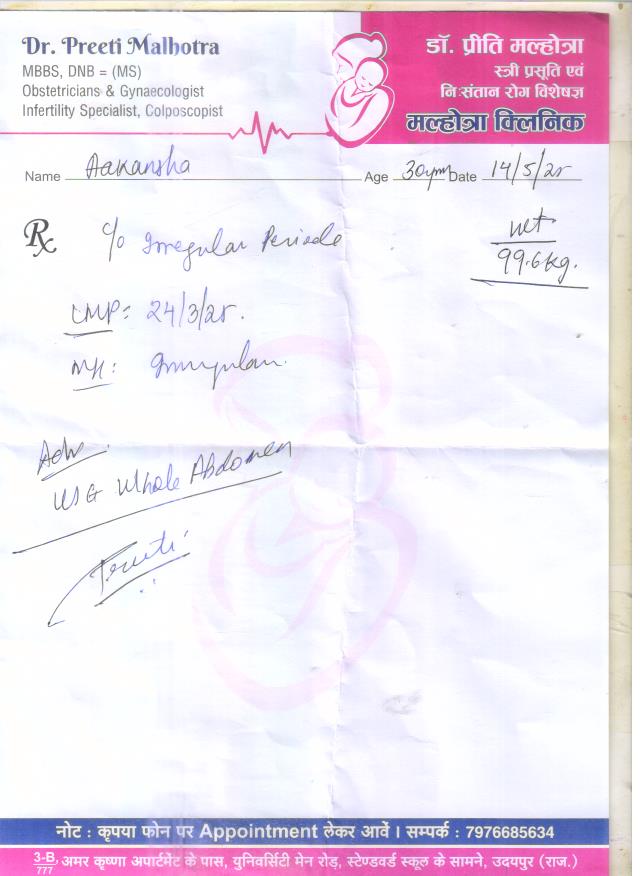 Dr. Preeti Malhotra
MBBS, DNB = (MS)
Obstetricians & Gynaecologist
Infertility Specialist, Colposcopist
डॉ. प्रीति मल्होत्रा
स्त्री प्रसूति एवं
निःसंतान रोग विशेषज्ञ
मल्होत्रा क्लिनिक
Name Aakansha Age 30yrs Date 14/5/25
Rx c/o Irregular Periods
wt
99.6kg.
LMP: 24/3/25.
MH: Irregular.
Adv.
USG Whole Abdomen
Preeti
नोट : कृपया फोन पर Appointment लेकर आवें । सम्पर्क : 7976685634
3-B/777, अमर कृष्णा अपार्टमेंट के पास, युनिवर्सिटी मेन रोड़, स्टेण्डवर्ड स्कूल के सामने, उदयपुर (राज.)